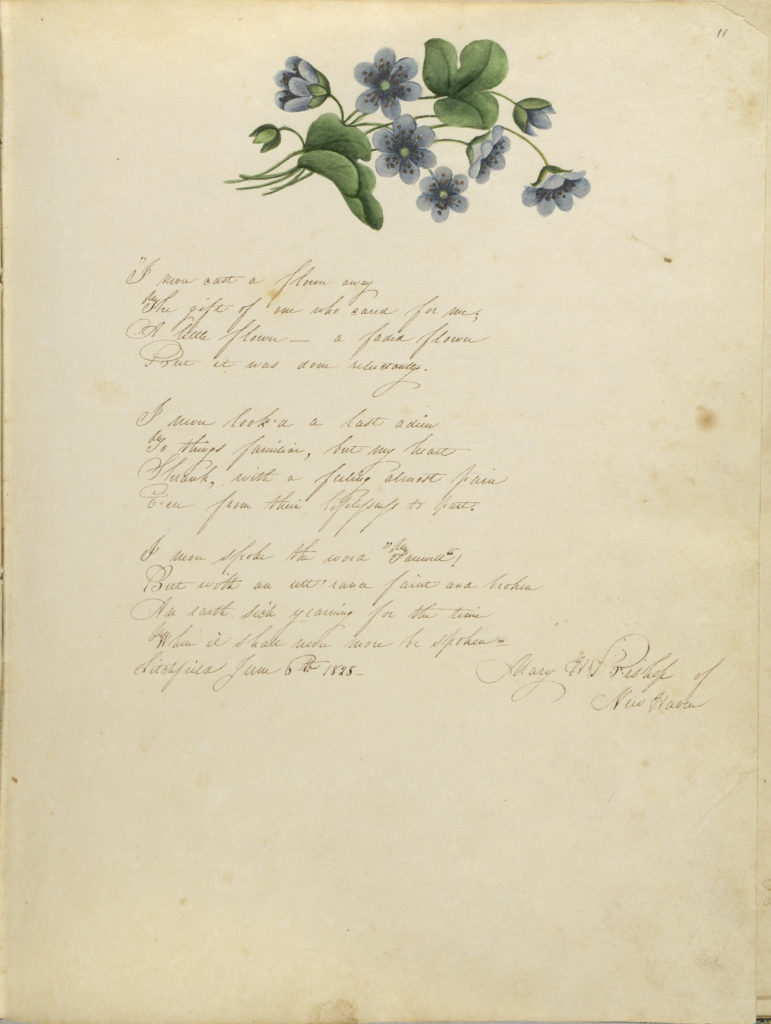 11
"I never cast a flower away
The gift of one who cared for me;
A little flower — a faded flower
But it was done reluctantly.
I never look'd a last adieu
To things familiar, but my heart
Shrank, with a feeling almost pain
Even from their lifelessness to part.
I never spoke the word "Farewell"!
But with an utt'rance faint and broken
An earth-sick yearning for the time
When it shall never more be spoken"
Litchfield June 6th
Mary Bishop of
New Haven